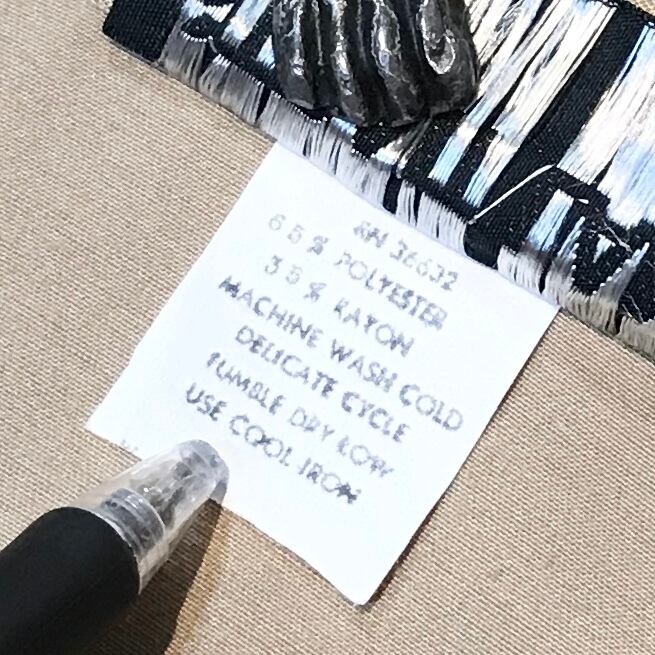 RN 36632
65% POLYESTER
35% RAYON
MACHINE WASH COLD
DELICATE CYCLE
TUMBLE DRY LOW
USE COOL IRON